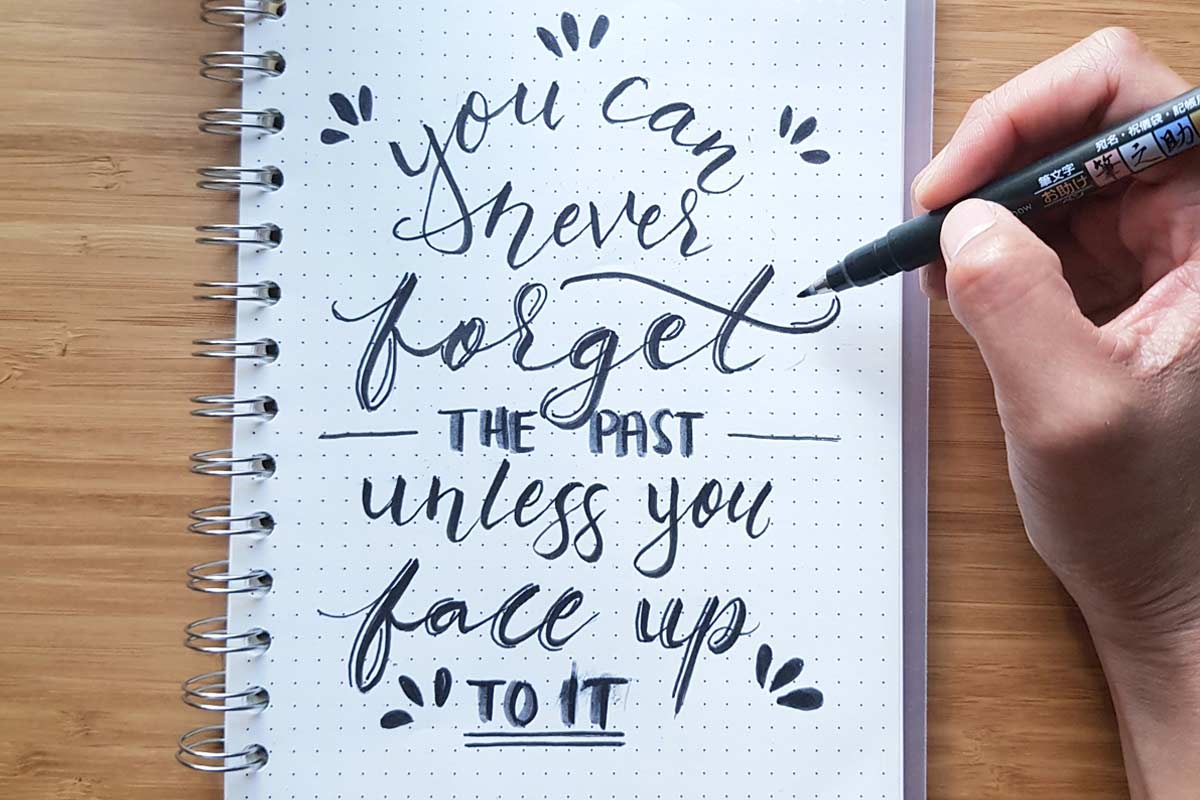 you can
never
forget
THE PAST
unless you
face up
TO IT
宛名・祝儀袋・記帳
筆之助
筆文字
お助け